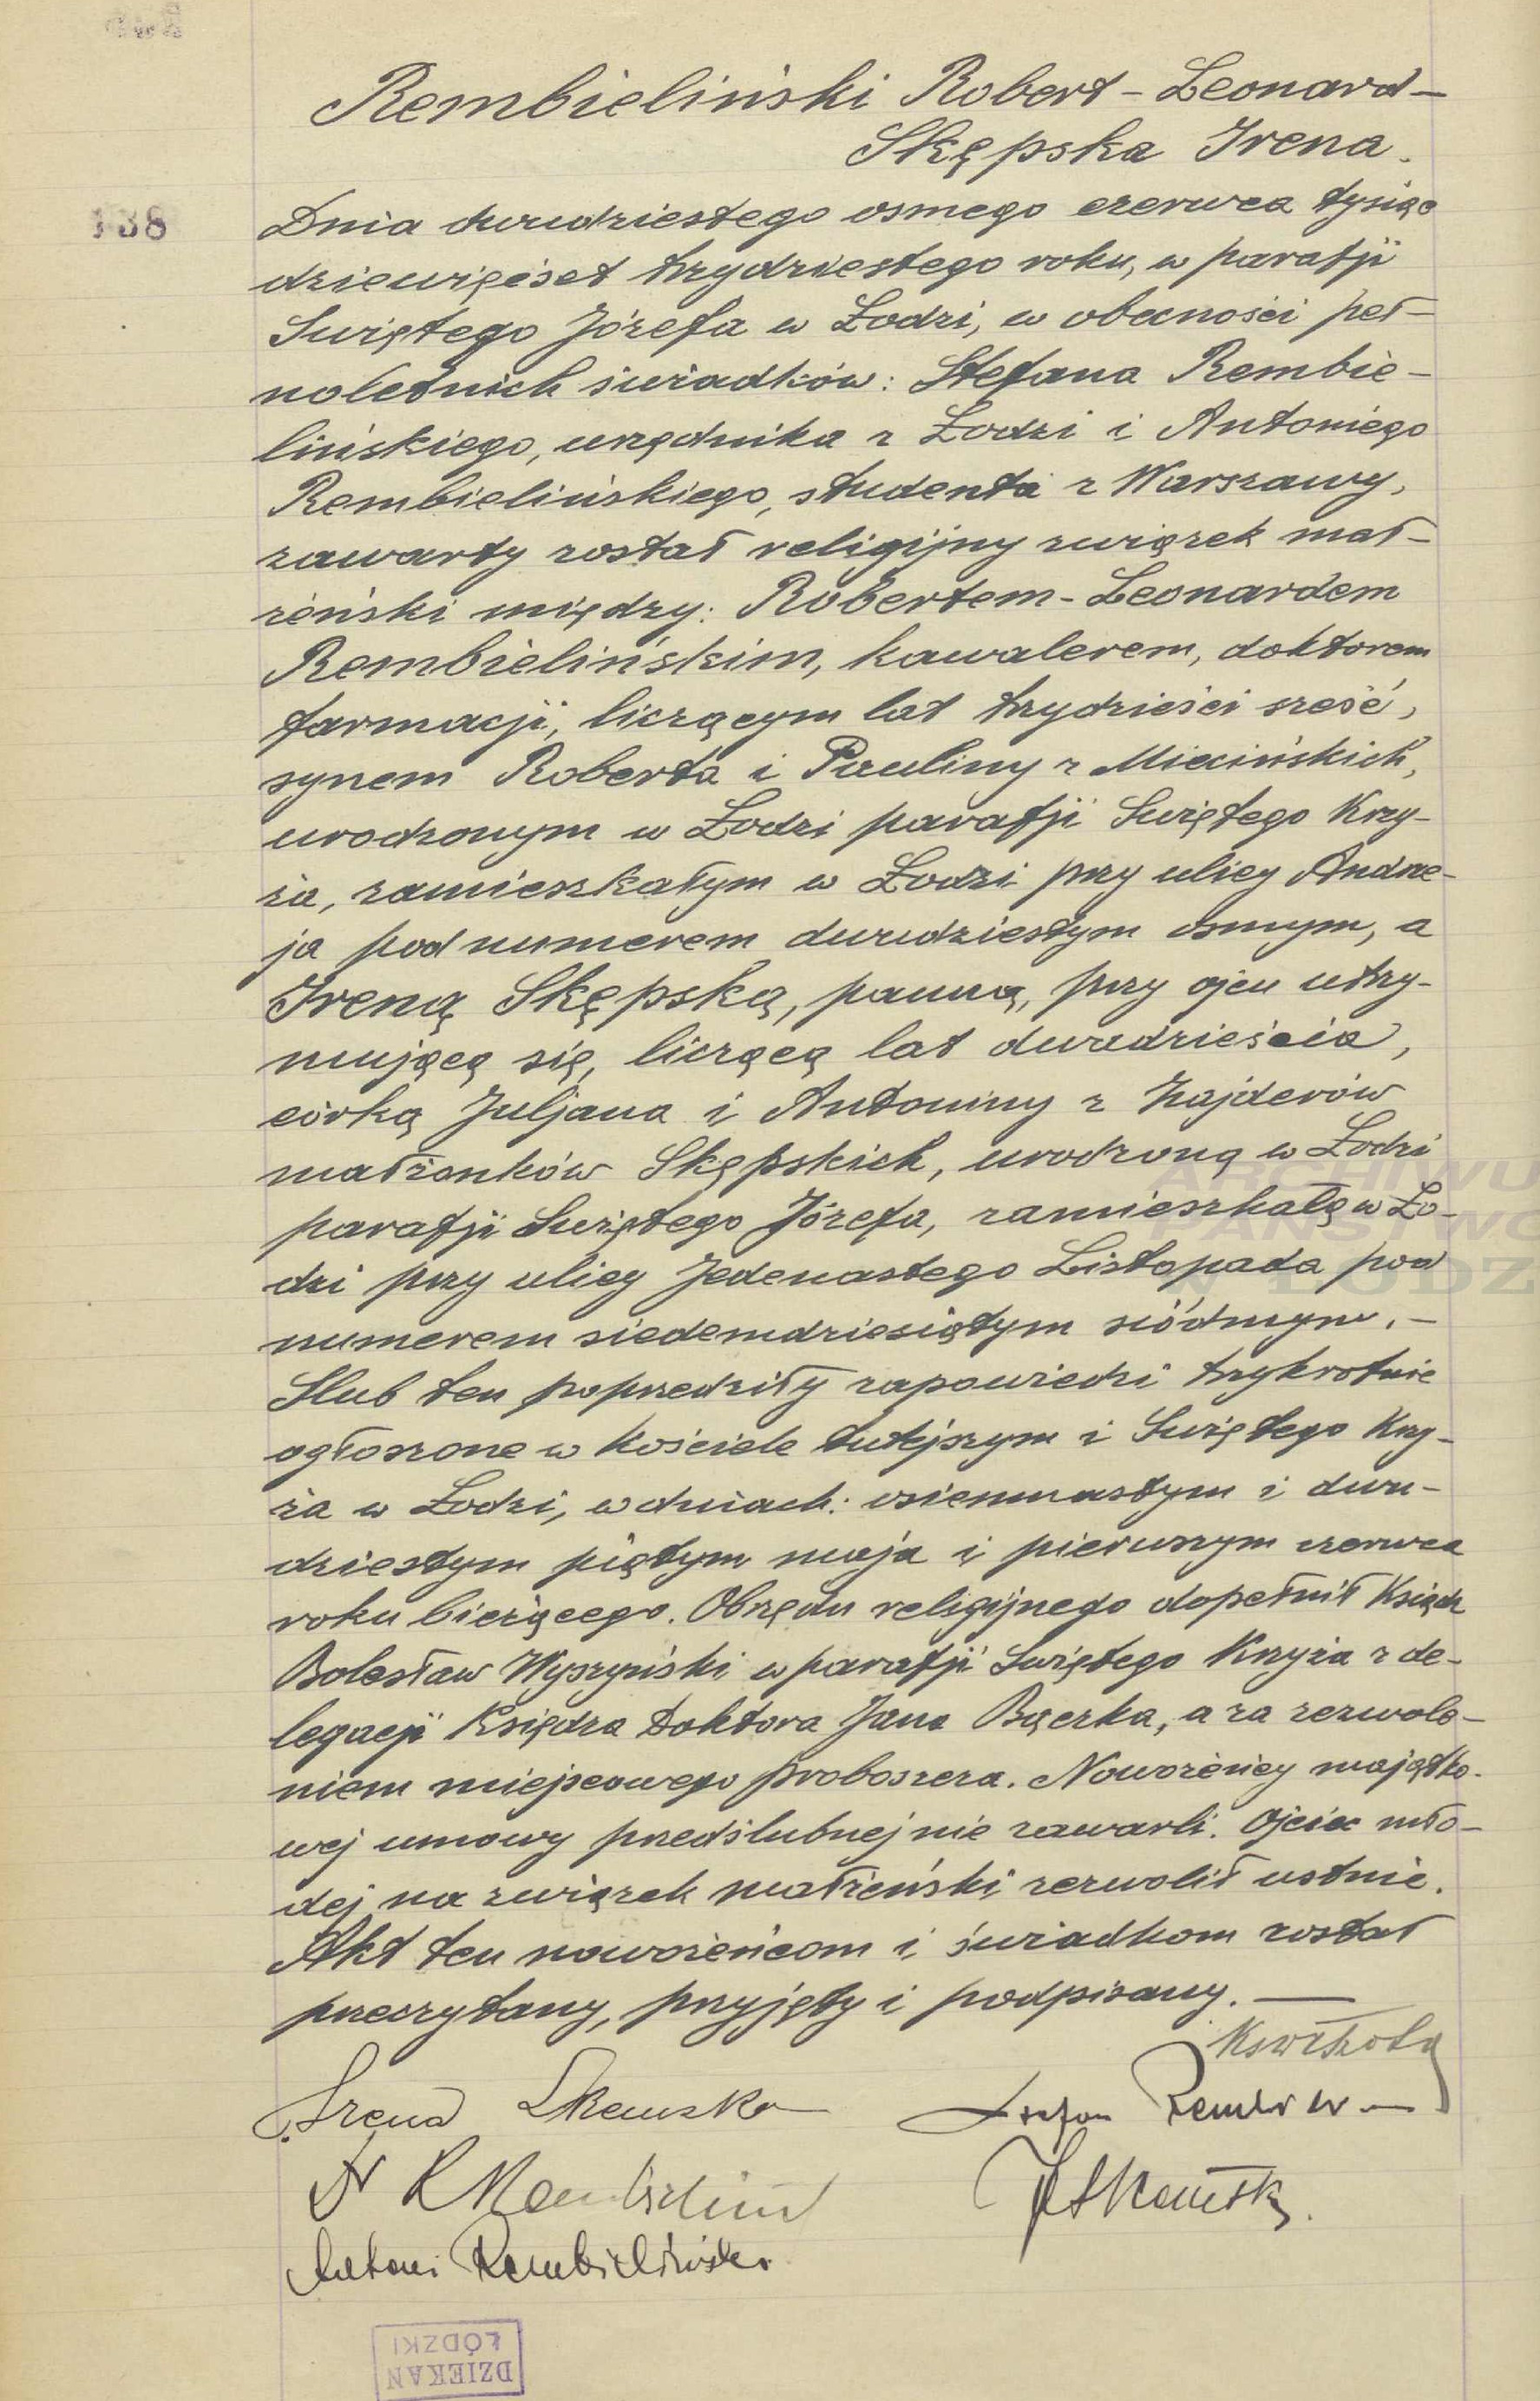 Rembieliński Robert - Leonard -
Skępska Irena.
138
Dnia dwudziestego osmego czerwca tysiąc
dziewięćset trzydziestego roku, w parafji
Świętego Józefa w Łodzi, w obecności peł-
noletnich świadków: Stefana Rembie-
lińskiego, urzędnika z Łodzi i Antoniego
Rembielińskiego, studenta z Warszawy,
zawarty został religijny związek mał-
żeński między: Robertem-Leonardem
Rembielińskim, kawalerem, doktorem
farmacji, liczącym lat trzydzieści sześć,
synem Roberta i Pauliny z Miecińskich,
urodzonym w Łodzi parafji Świętego Krzy-
ża, zamieszkałym w Łodzi przy ulicy Andrze-
ja pod numerem dwudziestym osmym, a
Ireną Skępską, panną, przy ojcu utrzy-
mującą się, liczącą lat dwadzieścia,
córką Juljana i Antoniny z Hajderów
małżonków Skępskich, urodzoną w Łodzi
parafji Świętego Józefa, zamieszkałą w Ło-
dzi przy ulicy Jedenastego Listopada pod
numerem siedemdziesiątym siódmym. -
Ślub ten poprzedziły zapowiedzi trzykrotnie
ogłoszone w kościele tutejszym i Świętego Krzy-
ża w Łodzi, w dniach: osiemnastym i dwu-
dziestym piątym maja i pierwszym czerwca
roku bieżącego. Obrzędu religijnego dopełnił Ksiądz
Bolesław Wyszyński w parafji Świętego Krzyża z de-
legacji Księdza Doktora Jana Bączka, a za zezwole-
niem miejscowego proboszcza. Nowożeńcy majątko-
wej umowy przedślubnej nie zawarli. Ojciec mło-
dej na związek małżeński zezwolił ustnie.
Akt ten nowożeńcom i świadkom został
przeczytany, przyjęty i podpisany. —
Irena Skempska
Stefan
Antoni Rembieliński
DZIEKAN
ŁÓDZKI
ARCHIWU
PAŃSTWO
W ŁODZ